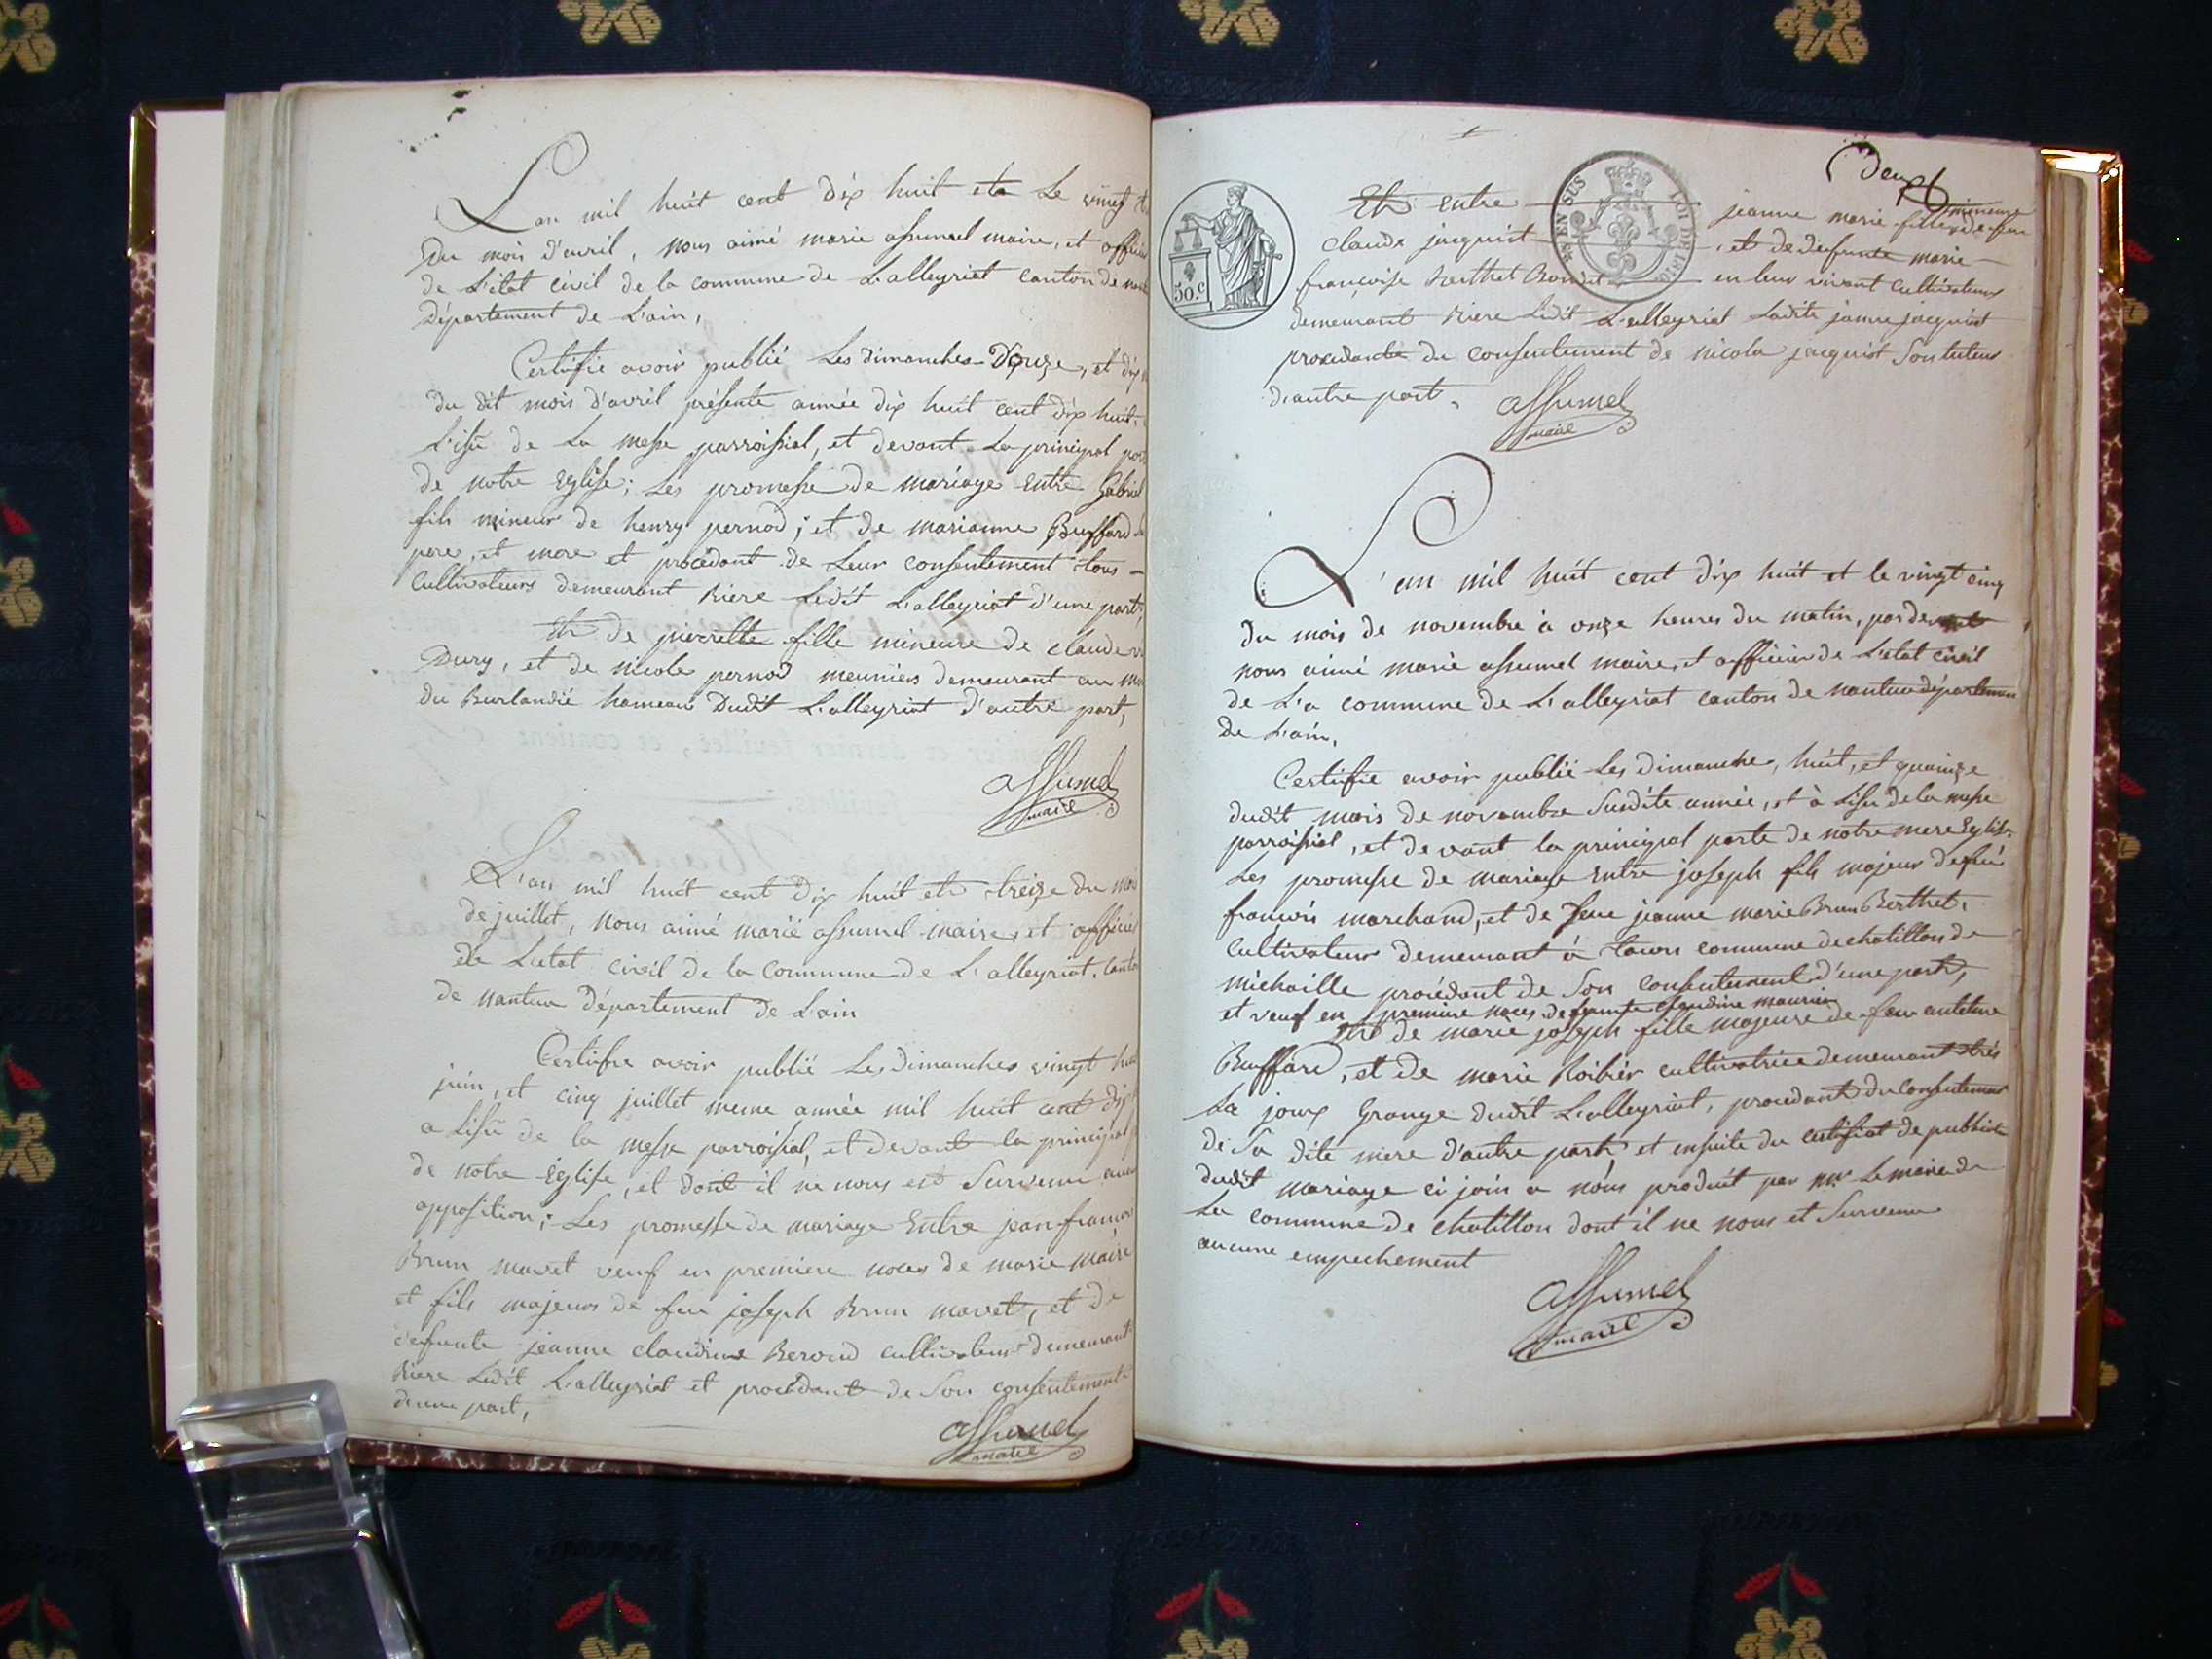 L'an mil huit cent dix huit et le vingt
du mois d'avril, nous aimé marie assumel maire, et officier
de L'etat civil de la commune de L'alleyriat canton de
Département de L'ain,
Certifie avoir publié Les dimanches Douze, et dix
du dit mois d'avril présente année dix huit cent dix huit,
L'isu de La messe parroissial, et devant La principal
de notre Eglise; Les promesse de mariage Entre Gabriel
fils mineur de henry pernod; et de marianne Buffard
pere, et mere et procedant de Leur consentement tous
Cultivateurs demeurant Riere Ledit L'alleyriat d'une part,
Et de pierrette fille mineure de claude
Dury, et de nicole pernod meuniers demeurant au
du Burlandié hameau Dudit L'alleyriat d'autre part,
assumel
maire
L'an mil huit cent Dix huit et treize du mois
de juillet, nous aimé marie assumel maire, et officier
de L'etat civil de la commune de L'alleyriat, canton
de nantua département de L'ain
Certifie avoir publié Les dimanches vingt huit
juin, et cinq juillet meme année mil huit cent dix
a Lisu de la messe parroisial, et devant la principal
de notre Eglise, et dont il ne nous est Survenu
opposition; Les promesse de mariage Entre jean françois
Brun mavet veuf en premiere noces de marie maire
et fils majeur de feu joseph Brun mavet, et de
defunte jeanne claudine Beroud cultivateur demeurant
Riere Ledit L'alleyriat et procedant de Son consentement
d'une part,
assumel
maire
deux
50.c
EN SUS
LOI DE 1816
Et Entre jeanne marie fille mineure de feu
claude jacquiot, et de defunte marie
françoise Berthet Bondet en leur vivant cultivateurs
demeurant Riere Ledit L'alleyriat Ladite jeanne jacquiot
procedante du consentement de nicola jacquiot Son tuteur
d'autre part.
assumel
maire
L'an mil huit cent dix huit et le vingt cinq
du mois de novembre à onze heures du matin, pardevant
nous aimé marie assumel maire, et officier de L'etat civil
de L'a commune de L'alleyriat canton de nantua département
De L'ain,
Certifie avoir publié Les dimanche, huit, et quainze
dudit mois de novembre Susdite année, et à Lisu de la messe
parroisial, et devant la principal porte de notre mere Eglise.
Les promesse de mariage Entre joseph fils majeur de feu
françois marchand, et de feue jeanne marie Brun Berthet,
Cultivateur demeurant à tacon commune de chatillon de
michaille procédant de Son consentement d'une part,
et veuf en premiere noces de defunte claudine maurier
Et de marie joseph fille majeure de feu antelme
Buffard, et de marie Roibier cultivatrice demeurant
La joux Grange dudit L'alleyriat, procedant du consentement
de Sa dite mere d'autre part, et ensuite du certificat de publication
dudit mariage ci join a nous produit par mr Le maire de
La commune de chatillon dont il ne nous et Survenu
aucune empechement
assumel
maire